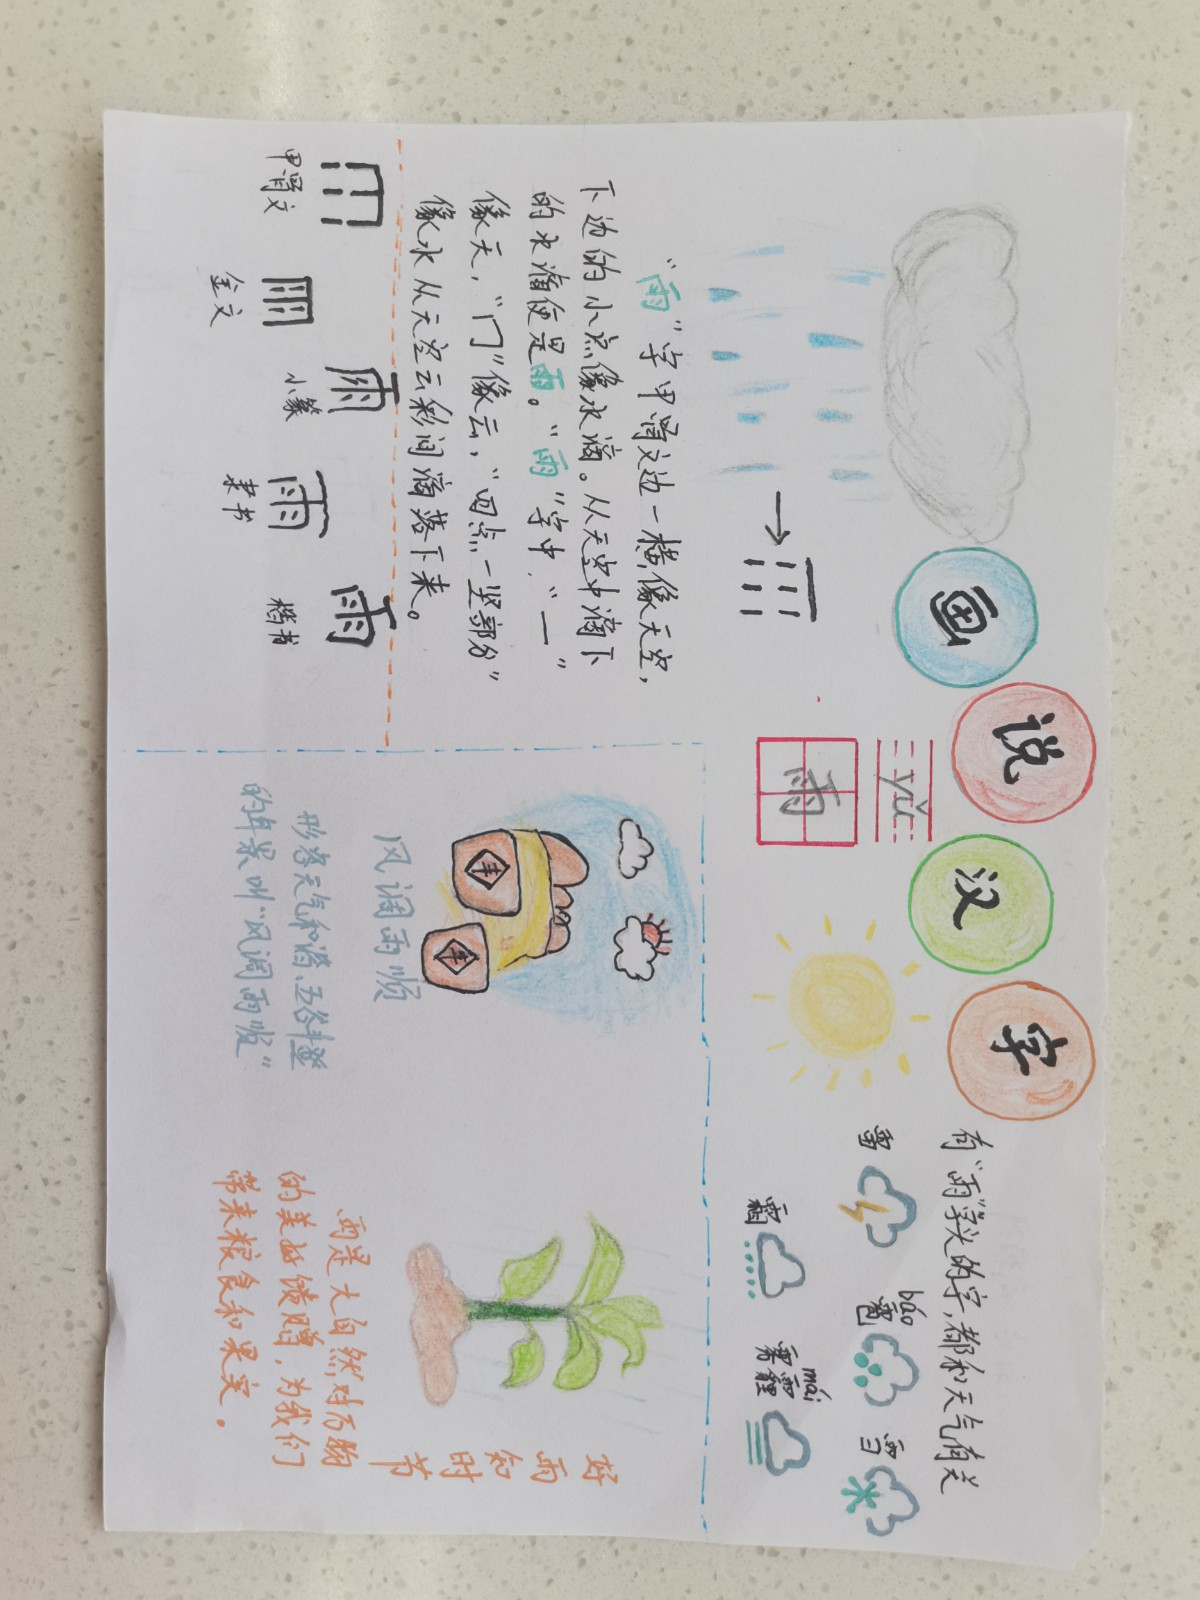 画说汉字
yǔ
雨
"雨"字甲骨文边一横像天空,
下边的小点像水滴。从天空中滴下
的水滴便是雨。"雨"字中,"一"
像天,"冂"像云,"四点一竖部分"
像水从天空云彩间滴落下来。
甲骨文
金文
雨
小篆
雨
隶书
雨
楷书
雨
有"雨"字头的字,都和天气有关
雷
báo
雹
雪
霜
mái
雾霾
丰
丰
风调雨顺
形容天气和谐、五谷丰登
的年景叫"风调雨顺"
好
雨
知
时
节
雨是大自然对万物
的美好馈赠,为我们
带来粮食和果实。